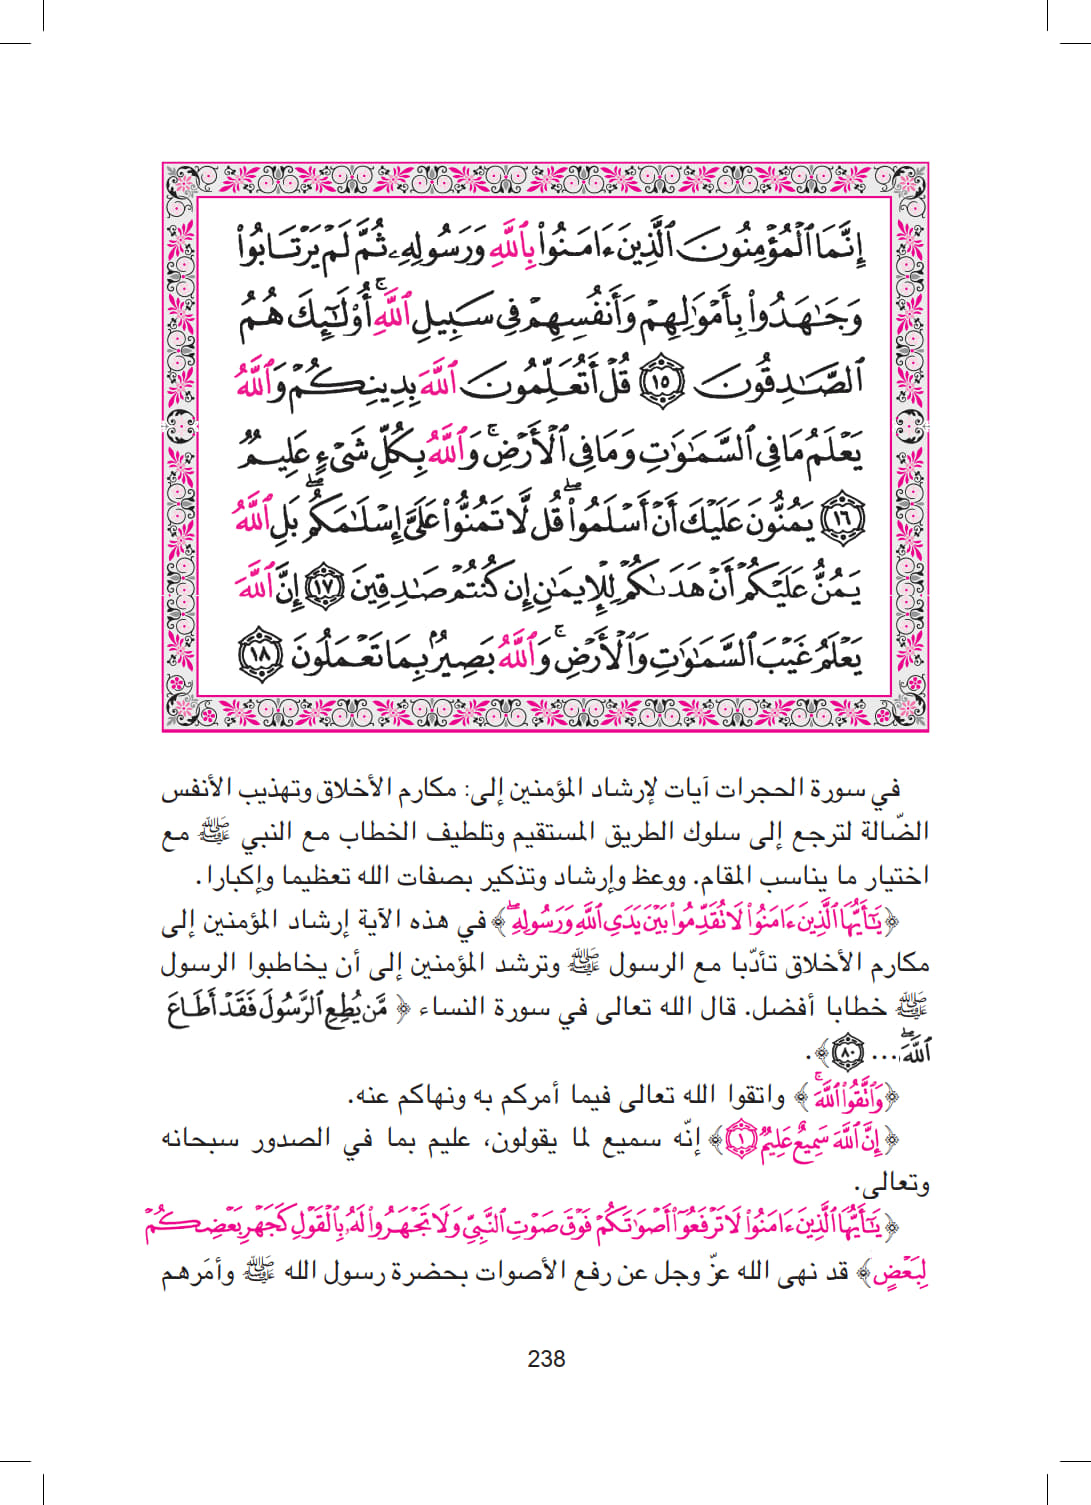 إِنَّمَا ٱلْمُؤْمِنُونَ ٱلَّذِينَ ءَامَنُواْ بِٱللَّهِ وَرَسُولِهِۦ ثُمَّ لَمْ يَرْتَابُواْ
وَجَٰهَدُواْ بِأَمْوَٰلِهِمْ وَأَنفُسِهِمْ فِي سَبِيلِ ٱللَّهِۚ أُوْلَٰٓئِكَ هُمُ
ٱلصَّٰدِقُونَ ١٥ قُلْ أَتُعَلِّمُونَ ٱللَّهَ بِدِينِكُمْ وَٱللَّهُ
يَعْلَمُ مَا فِي ٱلسَّمَٰوَٰتِ وَمَا فِي ٱلْأَرْضِۚ وَٱللَّهُ بِكُلِّ شَيْءٍ عَلِيمٌ
١٦ يَمُنُّونَ عَلَيْكَ أَنْ أَسْلَمُواْۖ قُل لَّا تَمُنُّواْ عَلَيَّ إِسْلَٰمَكُمۖ بَلِ ٱللَّهُ
يَمُنُّ عَلَيْكُمْ أَنْ هَدَىٰكُمْ لِلْإِيمَٰنِ إِن كُنتُمْ صَٰدِقِينَ ١٧ إِنَّ ٱللَّهَ
يَعْلَمُ غَيْبَ ٱلسَّمَٰوَٰتِ وَٱلْأَرْضِۚ وَٱللَّهُ بَصِيرٌۢ بِمَا تَعْمَلُونَ ١٨
في سورة الحجرات آيات لإرشاد المؤمنين إلى: مكارم الأخلاق وتهذيب الأنفس
الضّالة لترجع إلى سلوك الطريق المستقيم وتلطيف الخطاب مع النبي ﷺ مع
اختيار ما يناسب المقام. ووعظ وإرشاد وتذكير بصفات الله تعظيما وإكبارا.
﴿يَٰٓأَيُّهَا ٱلَّذِينَ ءَامَنُواْ لَا تُقَدِّمُواْ بَيْنَ يَدَيِ ٱللَّهِ وَرَسُولِهِۦۖ﴾ في هذه الآية إرشاد المؤمنين إلى
مكارم الأخلاق تأدّبا مع الرسول ﷺ وترشد المؤمنين إلى أن يخاطبوا الرسول
ﷺ خطابا أفضل. قال الله تعالى في سورة النساء ﴿ مَّن يُطِعِ ٱلرَّسُولَ فَقَدْ أَطَاعَ
ٱللَّهَۖ... ٨٠﴾.
﴿وَٱتَّقُواْ ٱللَّهَۚ﴾ واتقوا الله تعالى فيما أمركم به ونهاكم عنه.
﴿إِنَّ ٱللَّهَ سَمِيعٌ عَلِيمٌ ١﴾ إنّه سميع لما يقولون، عليم بما في الصدور سبحانه
وتعالى.
﴿يَٰٓأَيُّهَا ٱلَّذِينَ ءَامَنُواْ لَا تَرْفَعُوٓاْ أَصْوَٰتَكُمْ فَوْقَ صَوْتِ ٱلنَّبِيِّ وَلَا تَجْهَرُواْ لَهُۥ بِٱلْقَوْلِ كَجَهْرِ بَعْضِكُمْ
لِبَعْضٍ﴾ قد نهى الله عزّ وجل عن رفع الأصوات بحضرة رسول الله ﷺ وأمَرهم
238